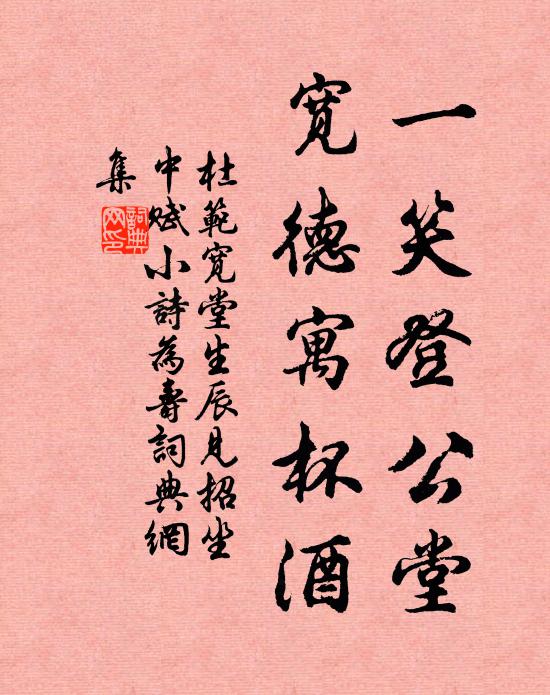 一笑登公堂
寬德寓杯酒
杜範寬堂生辰見招坐
中賦小詩為壽詞典網
集
詞典網印